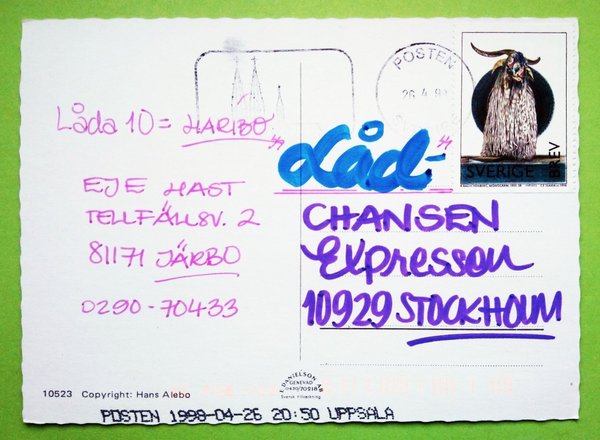 POSTEN
26.4.9
SVERIGE BREV
Låda 10 = HARIBO
"Låd-"
EJE HAST
TELLFÄLLSV. 2
81171 JÄRBO
0290-70433
CHANSEN
Expressen
10929 STOCKHOLM
E. DANIELSON AB
GENEVAD
0430/70918
Svensk tillverkning
10523 Copyright: Hans Alebo
POSTEN 1998-04-26 20:50 UPPSALA